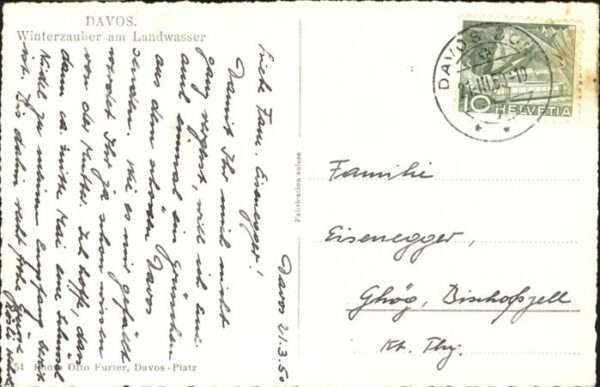 DAVOS.
Winterzauber am Landwasser
Davos 21.3.5
Liebe Fam. Eisenegger!
Damit Ihr mich nicht
ganz vergesst, will ich Euch
auch einmal ein Grüsschen
aus dem schönen Davos
senden. Wie es mir gefällt
werdet Ihr ja schon wissen
von der Mutter. Ich hoffe, dass
dann ca. mitte Mai eine
zu meinem Empfang bereit
ist. Bis dahin recht frohe Grüsse
Photo Otto Furter, Davos-Platz
Fabrication suisse
DAVOS
10 HELVETIA
Familie
Eisenegger,
Ghög, Bischofszell
Kt. Thg.